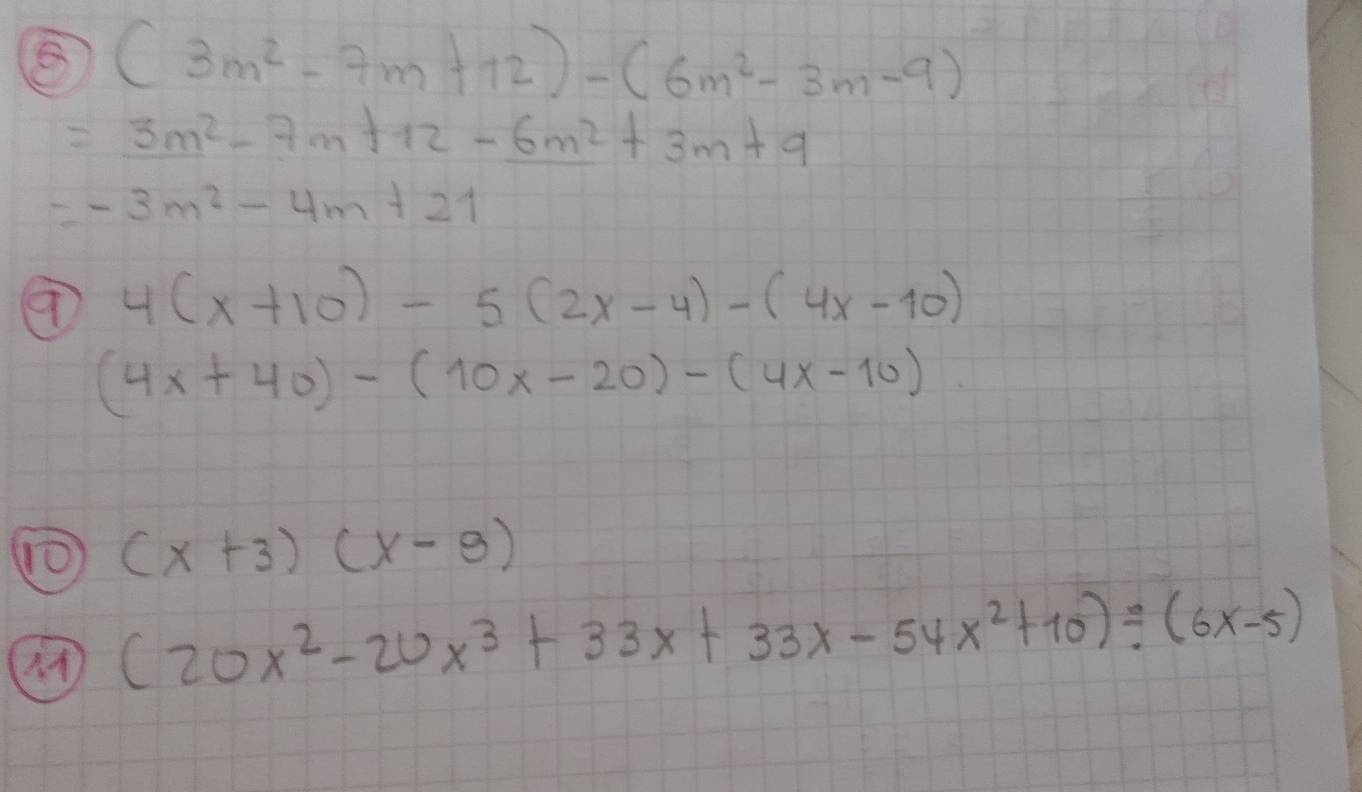 ⑧ (3m² - 7m + 12) - (6m² - 3m - 9)
= 3m² - 7m + 12 - 6m² + 3m + 9
= -3m² - 4m + 21
⑨ 4(x+10) - 5(2x-4) - (4x-10)
(4x+40) - (10x-20) - (4x-10)
⑩ (x+3) (x-8)
⑪ (20x² - 20x³ + 33x + 33x - 54x² + 10) ÷ (6x-5)